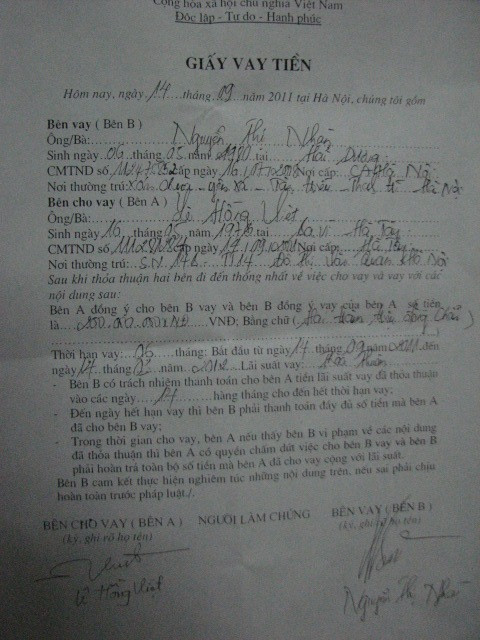 Cộng hòa xã hội chủ nghĩa Việt Nam
Độc lập - Tự do - Hạnh phúc
GIẤY VAY TIỀN
Hôm nay, ngày 14 tháng 09 năm 2011 tại Hà Nội, chúng tôi gồm
Bên vay ( Bên B )
Ông/Bà: Nguyễn Thị
Sinh ngày 06 tháng 05 năm tại Hải Dương
CMTND số cấp ngày Nơi cấp: CA Hà Nội
Nơi thường trú:
Bên cho vay ( Bên A )
Ông/Bà: Lê Hồng Việt
Sinh ngày 16 tháng 05 năm tại Ba Vì Hà Tây
CMTND số cấp ngày Nơi cấp: Hà Tây
Nơi thường trú: Đô thị Văn Quán Hà Nội
Sau khi thỏa thuận hai bên đi đến thống nhất về việc cho vay và vay với các
nội dung sau:
Bên A đồng ý cho bên B vay và bên B đồng ý vay của bên A số tiền
là VNĐ; Bằng chữ (
Thời hạn vay: 06 tháng: Bắt đầu từ ngày 14 tháng 09 năm 2011 đến
ngày 14 tháng năm 2012 Lãi suất vay:
- Bên B có trách nhiệm thanh toán cho bên A tiền lãi suất vay đã thỏa thuận
vào các ngày 14 hàng tháng cho đến hết thời hạn vay;
- Đến ngày hết hạn vay thì bên B phải thanh toán đầy đủ số tiền mà bên A
đã cho bên B vay;
- Trong thời gian cho vay, bên A nếu thấy bên B vi phạm về các nội dung
đã thỏa thuận thì bên A có quyền chấm dứt việc cho bên B vay và bên B
phải hoàn trả toàn bộ số tiền mà bên A đã cho vay cộng với lãi suất.
Bên B cam kết thực hiện nghiêm túc những nội dung trên, nếu sai phải chịu
hoàn toàn trước pháp luật./.
BÊN CHO VAY ( BÊN A ) NGƯỜI LÀM CHỨNG BÊN VAY ( BÊN B )
(ký, ghi rõ họ tên) (ký, ghi rõ họ tên)
Lê Hồng Việt
Nguyễn Thị